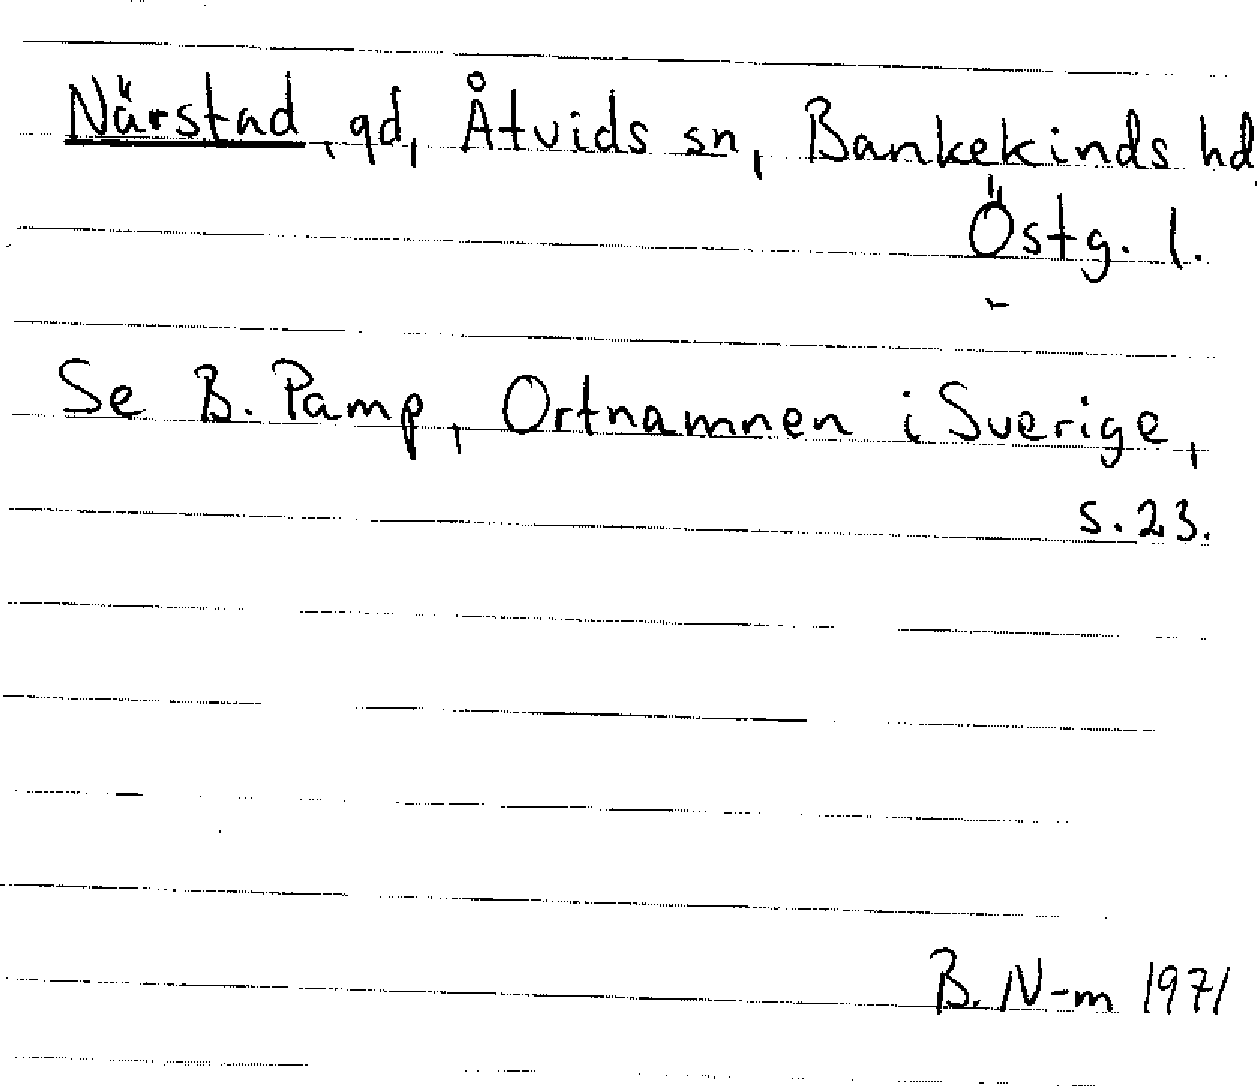 Närstad, gd, Åtvids sn, Bankekinds hd
Östg. l.
Se B. Pamp, Ortnamnen i Sverige,
s. 23.
B. N-m 1971